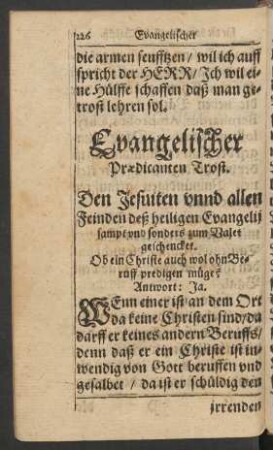 226 Evangelischer
die armen seufftzen / wil ich auff
spricht der HERR / Ich wil ei-
ne Hülffe schaffen daß man ge-
trost lehren sol.
Evangelischer
Prædicanten Trost.
Den Jesuiten vnnd allen
Feinden deß heiligen Evangelij
sampt vnd sonders zum Valet
geschencket.
Ob ein Christe auch wol ohn Be-
ruff predigen müge?
Antwort: Ja.
WEnn einer ist an dem Ort
da keine Christen sind / da
darff er keines andern Beruffs /
denn daß er ein Christe ist in-
wendig von Gott beruffen vnd
gesalbet / da ist er schüldig den
irrenden